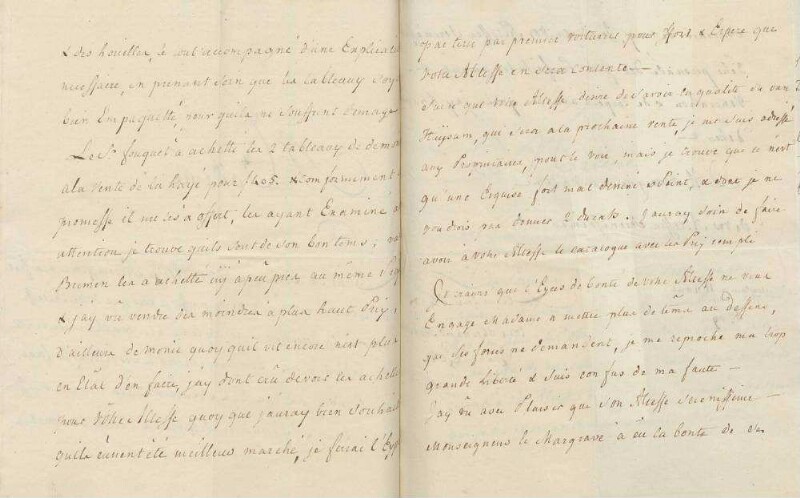 & des houettes, le tout accompagné d'une Explicati
necessaire, en prenant soin que les tableaux soye
bien Empaquetté, pour quils ne souffrent domage
Le Sr fouquet a achetté les 2 tableaux de demo
a la vente de la haye pour f 405. & conformement
promesse il me les a offert, les ayant Examiné a
attention je trouve quils sont de son bon tems,
Brimon les a achetté icÿ a peu pres au même
& j'ay vû vendre des moindres a plus haut Prix,
D'ailleurs de monie quoy quil vit encore n'est plus
en Etat d'en faire, j'ay dont crû devoir les achette
pour Vôtre Altesse quoy que j'auray bien souhait
quils eussent été meilleur marché, je ferai l'Exp
par terre par premiere voitures pour ffort & Espere que
votre Altesse en sera contente —
Suite que Votre Altesse desire de savoir la qualité du van
Huijsum, qui sera a la prochaine vente, je me suis adressé
aux Proprietaires, pour le voir, mais je trouve que ce n'est
qu'une Esquise fort mal dessiné & Peint, & dont je ne
voudrois pas donner 2 ducats. J'auray soin de faire
avoir à Vôtre Altesse le catalogue avec les Prix remplÿ
Je crains que l'Exces de bonté de vôtre Altesse ne vous
Engage Madame a mettre plus de tems au Dessein,
que ses forces ne demandent, je me reproche ma trop
grande Liberté & suis confus de ma faute —
J'ay vû avec Plaisir que son Altesse serenissime
Monseigneur le Margrave a eu la bonté de se